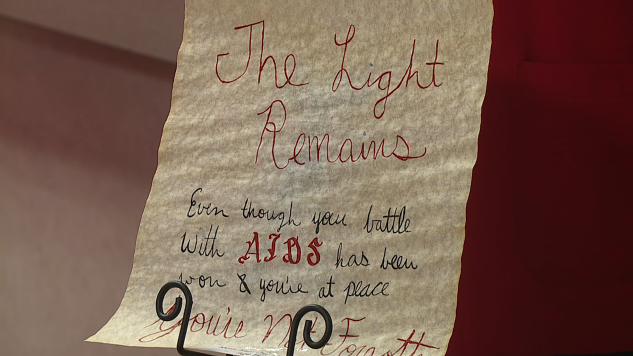 The Light
Remains
Even though your battle
With AIDS has been
won & you're at peace
You're Not Forgotten